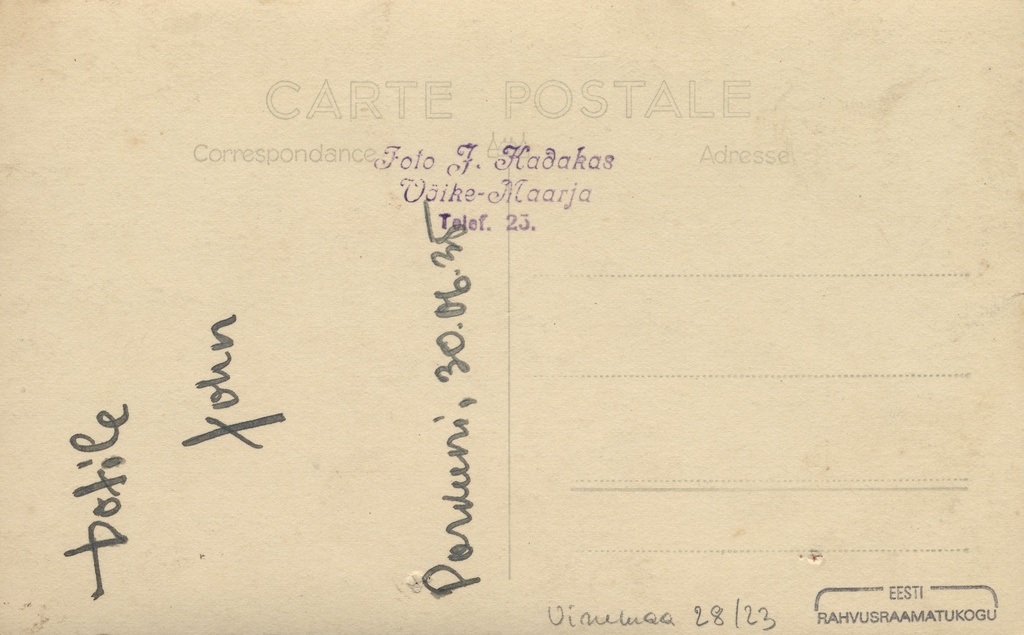 CARTE POSTALE
Correspondance
Adresse
Foto J. Kadakas
Väike-Maarja
Telef. 23.
John
30.06.35
Virumaa 28/23
EESTI
RAHVUSRAAMATUKOGU